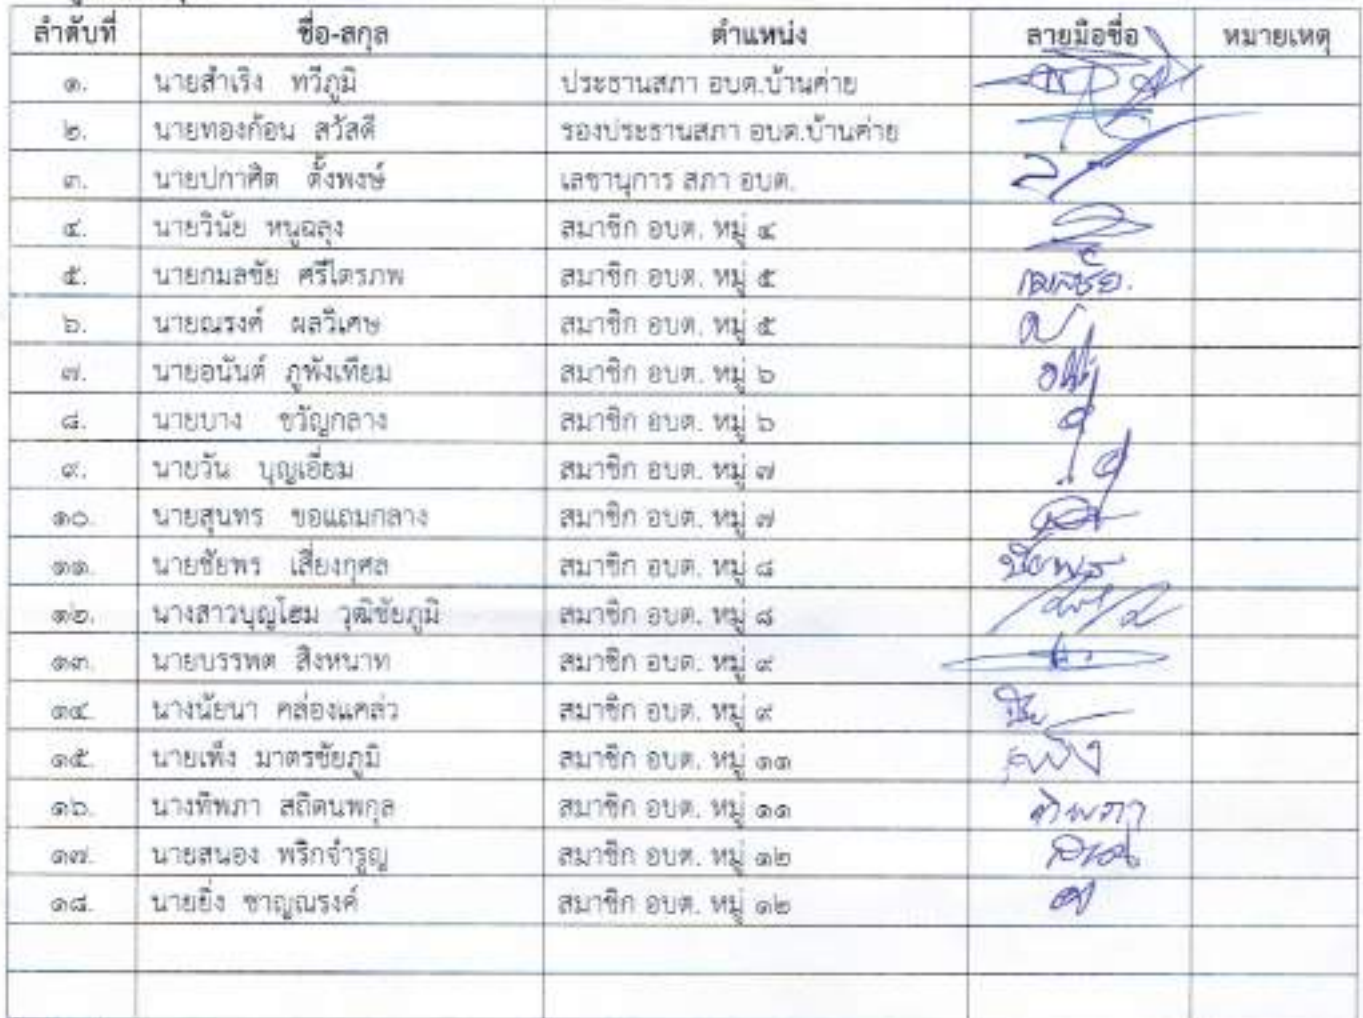 ลำดับที่ ชื่อ-สกุล ตำแหน่ง ลายมือชื่อ หมายเหตุ
๑. นายสำเริง ทวีภูมิ ประธานสภา อบต.บ้านค่าย
๒. นายทองก้อน สวัสดี รองประธานสภา อบต.บ้านค่าย
๓. นายปกาศิต ตั้งพงษ์ เลขานุการ สภา อบต.
๔. นายวินัย หนูฉลุง สมาชิก อบต. หมู่ ๔
๕. นายกมลชัย ศรีไตรภพ สมาชิก อบต. หมู่ ๕ กมลชัย.
๖. นายณรงค์ ผลวิเศษ สมาชิก อบต. หมู่ ๕
๗. นายอนันต์ ภูพังเทียม สมาชิก อบต. หมู่ ๖
๘. นายบาง ขวัญกลาง สมาชิก อบต. หมู่ ๖
๙. นายวัน บุญเอี่ยม สมาชิก อบต. หมู่ ๗
๑๐. นายสุนทร ขอแถมกลาง สมาชิก อบต. หมู่ ๗
๑๑. นายชัยพร เสี่ยงกุศล สมาชิก อบต. หมู่ ๘ ชัยพร
๑๒. นางสาวบุญโฮม วุฒิชัยภูมิ สมาชิก อบต. หมู่ ๘
๑๓. นายบรรพต สิงหนาท สมาชิก อบต. หมู่ ๙
๑๔. นางนัยนา คล่องแคล่ว สมาชิก อบต. หมู่ ๙
๑๕. นายเพ็ง มาตรชัยภูมิ สมาชิก อบต. หมู่ ๑๑ เพ็ง
๑๖. นางทิพภา สถิตนพกุล สมาชิก อบต. หมู่ ๑๑ ทิพภา
๑๗. นายสนอง พริกจำรูญ สมาชิก อบต. หมู่ ๑๒
๑๘. นายยิ่ง ชาญณรงค์ สมาชิก อบต. หมู่ ๑๒